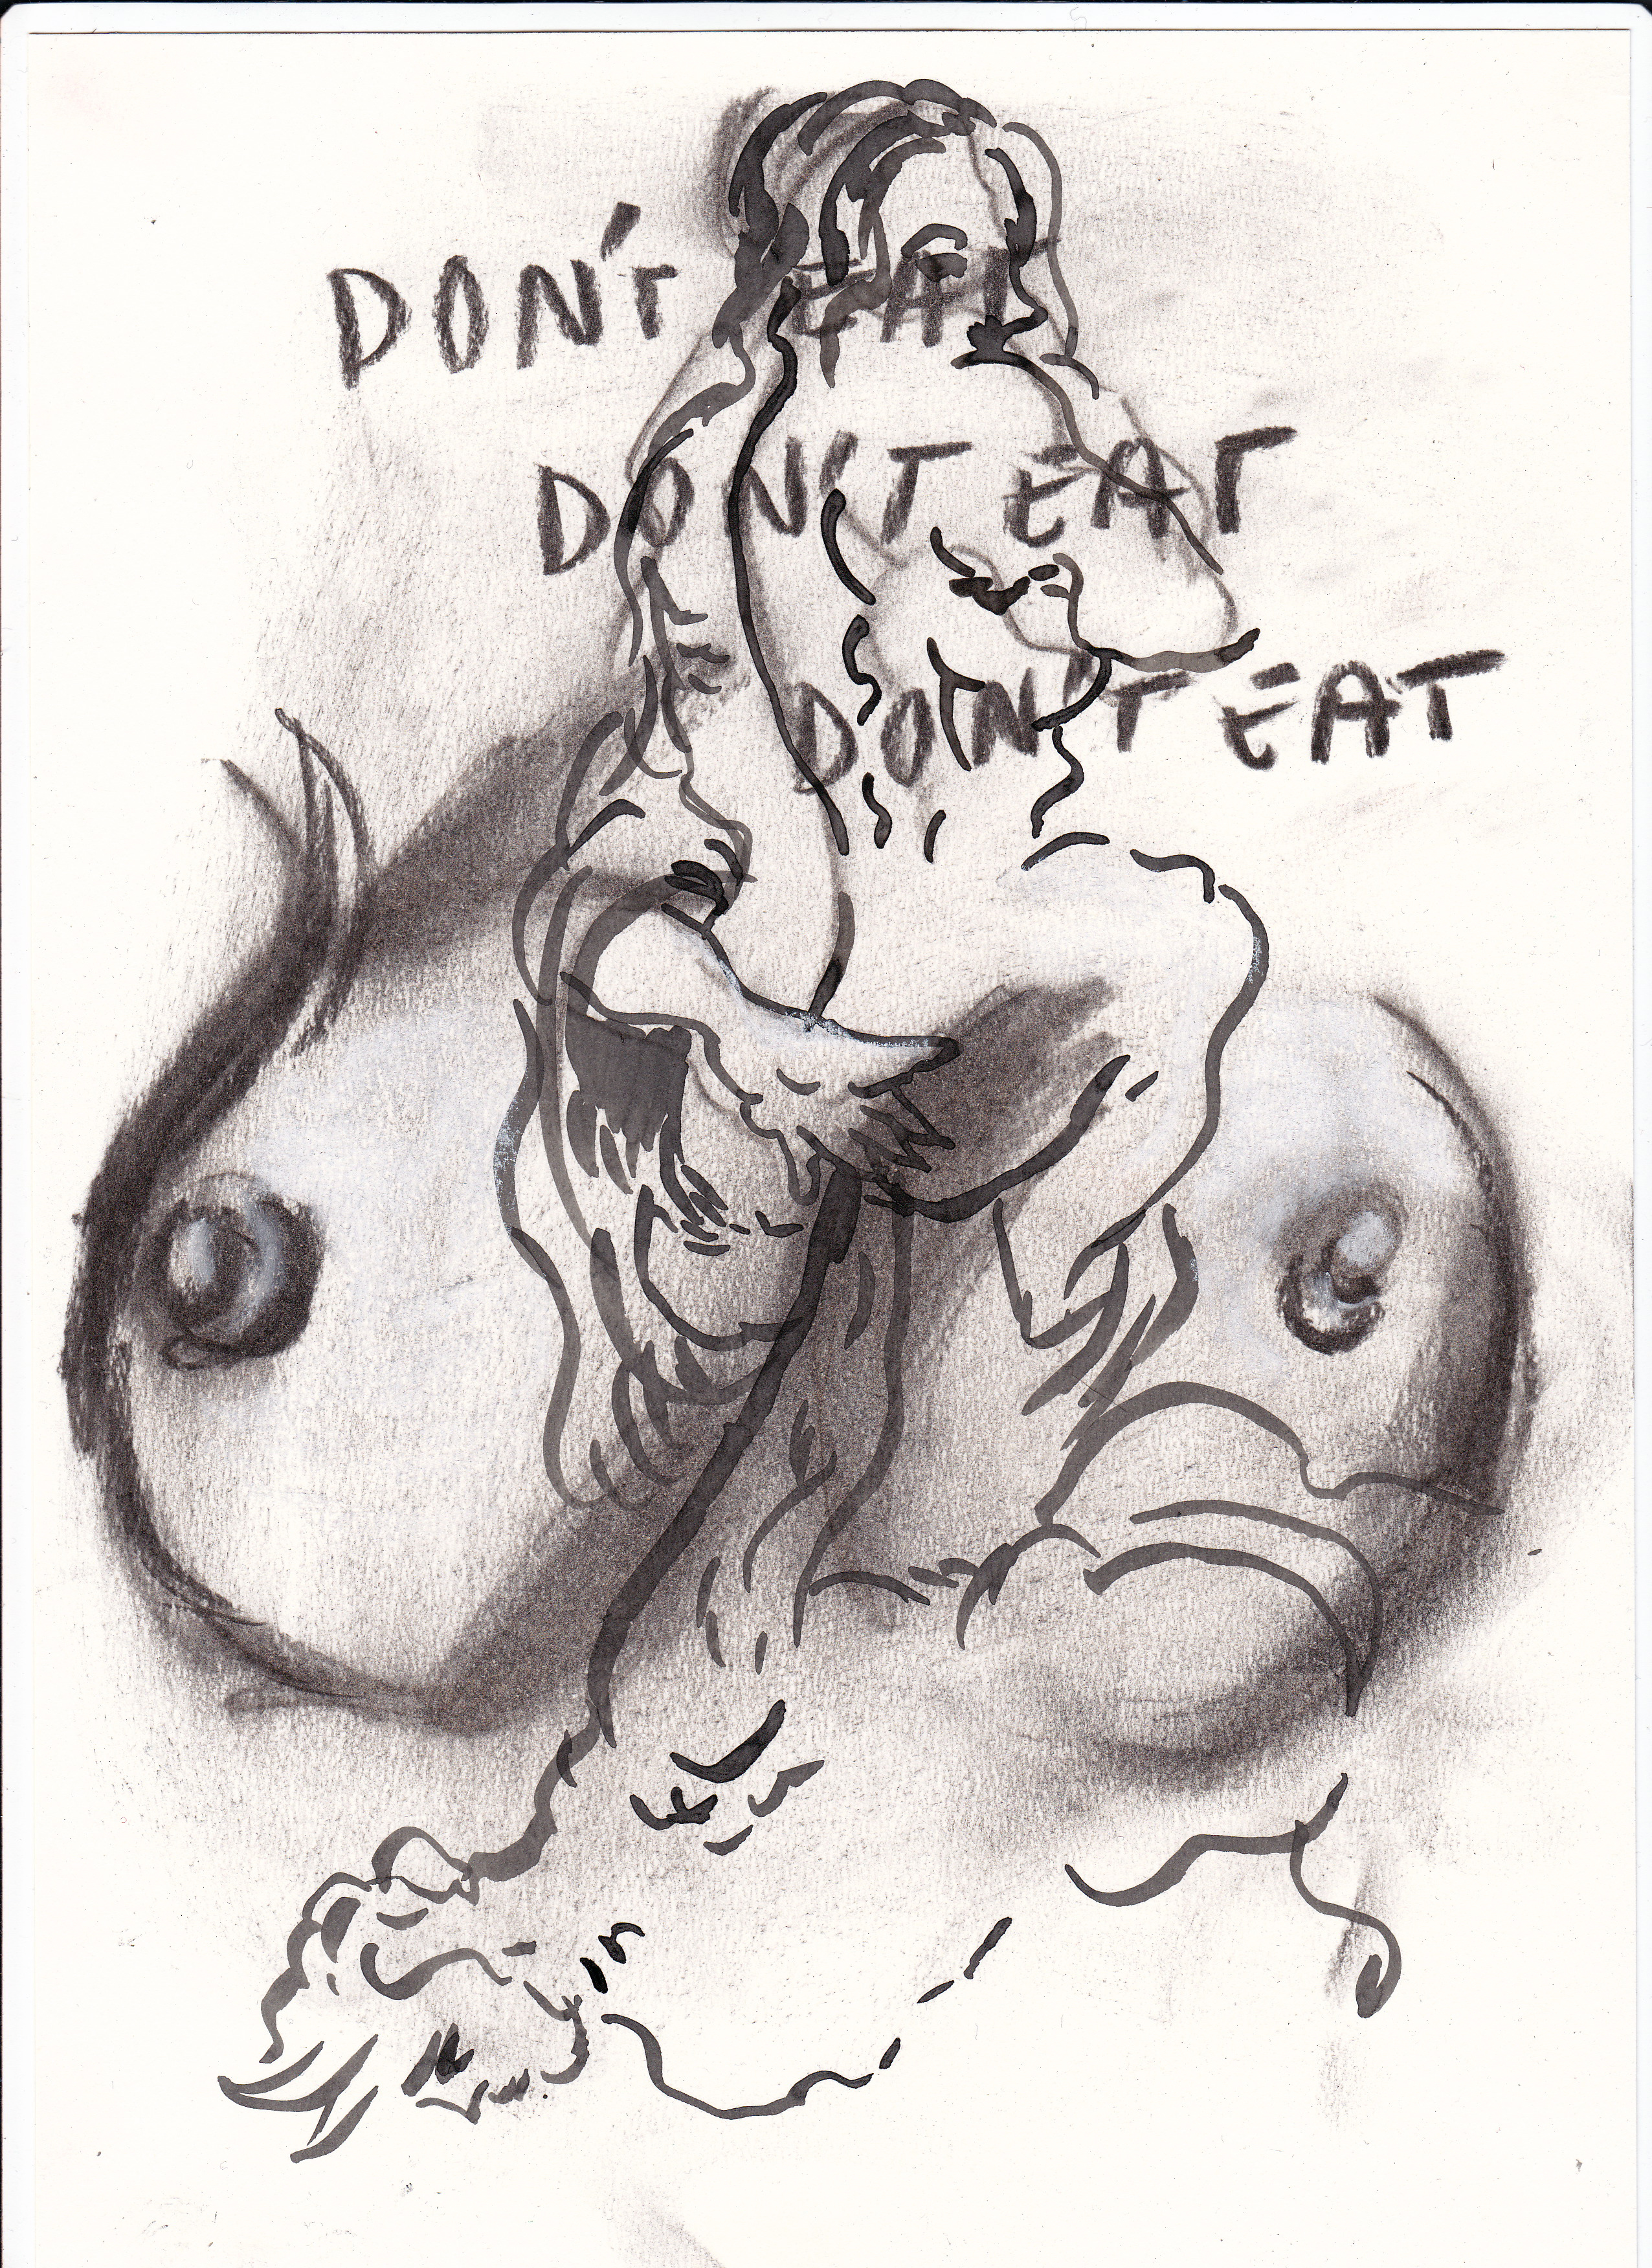 DON'T EAT
DON'T EAT
DON'T EAT